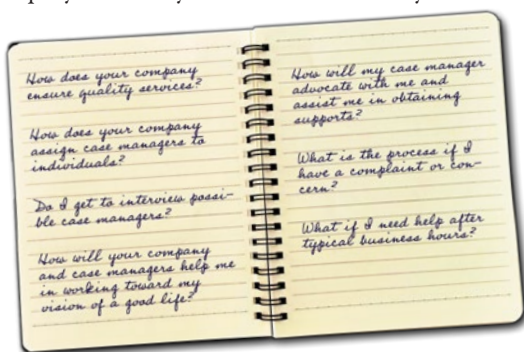 How does your company
ensure quality services?
How does your company
assign case managers to
individuals?
Do I get to interview possi-
ble case managers?
How will your company
and case managers help me
in working toward my
vision of a good life?
How will my case manager
advocate with me and
assist me in obtaining
supports?
What is the process if I
have a complaint or con-
cern?
What if I need help after
typical business hours?